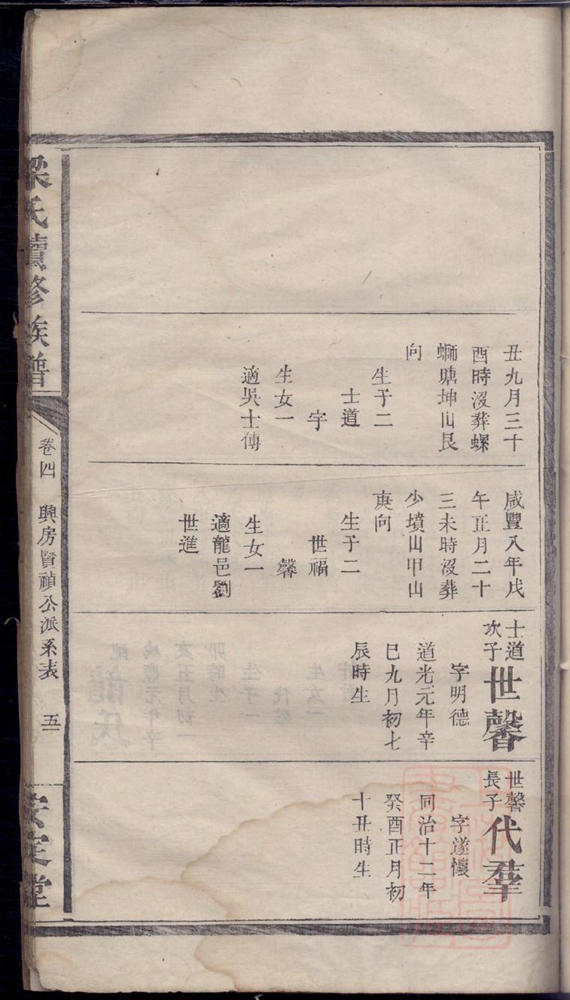 丑九月三十
酉時沒葬螺
螄塘坤山艮
向
生子二
士道
字
生女一
適吳士傅
咸豐八年戊
午正月二十
三未時沒葬
少墳山甲山
庚向
生子二
世福
馨
生女一
適龍邑劉
世進
士道
次子
世馨
字明德
道光元年辛
巳九月初七
辰時生
世馨
長子
代羣
字遂懷
同治十二年
癸酉正月初
十丑時生
梁氏續修族譜
卷四
興房賢禎公派系表
五
安定堂